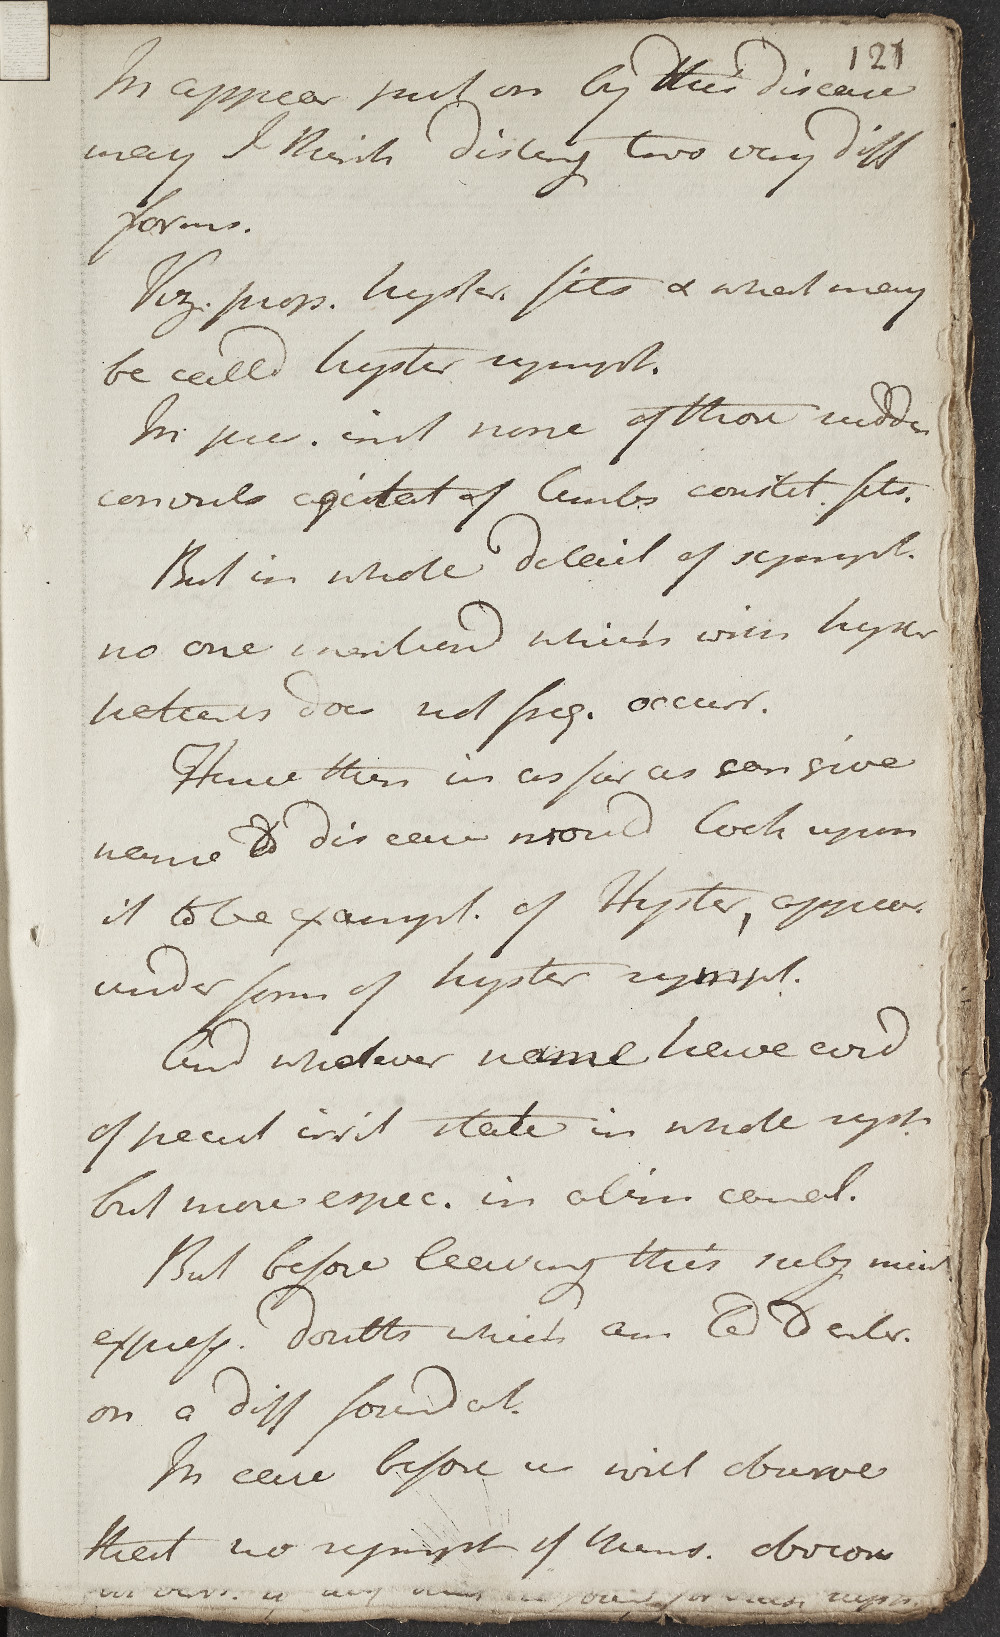 121
In appear put on by this disease
may I think disting two very diff
forms.
Viz. prop. hyster. fits & what may
be calld hyster sympt.
In pre. inst none of those sudden
convuls agitat of limbs constit. fits.
But in whole detail of sympt.
no one mentiond which with hyster
patients does not freq. occurr.
Hence then in as far as can give
name to disease would look upon
it to be exampt. of Hyster, appear.
under form of hyster sympt.
And whatever name have evid
of pecul irrit state in whole syst.
but more espec. in alim canal.
But before leaving this subj must
express. doubts which am led to enter.
on a diff foundat.
In case before us will observe
that no sympt of thems. obvious